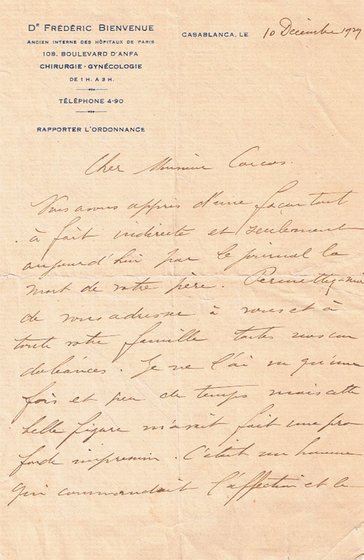 Dr FRÉDÉRIC BIENVENUE
ANCIEN INTERNE DES HÔPITAUX DE PARIS
108, BOULEVARD D'ANFA
CHIRURGIE - GYNÉCOLOGIE
DE 1 H. A 3 H.
TÉLÉPHONE 4-90
RAPPORTER L'ORDONNANCE
CASABLANCA, LE 10 Décembre 1929
Cher Monsieur Corcos.
Nous avons appris d'une façon tout
à fait indirecte et seulement
aujourd'hui par le journal la
mort de votre père. Permettez-moi
de vous adresser à vous et à
toute votre famille toutes mes con
doléances. Je ne l'ai vu qu'une
fois et peu de temps mais cette
belle figure m'avait fait une pro
fonde impression. C'était un homme
qui commandait l'affection et le